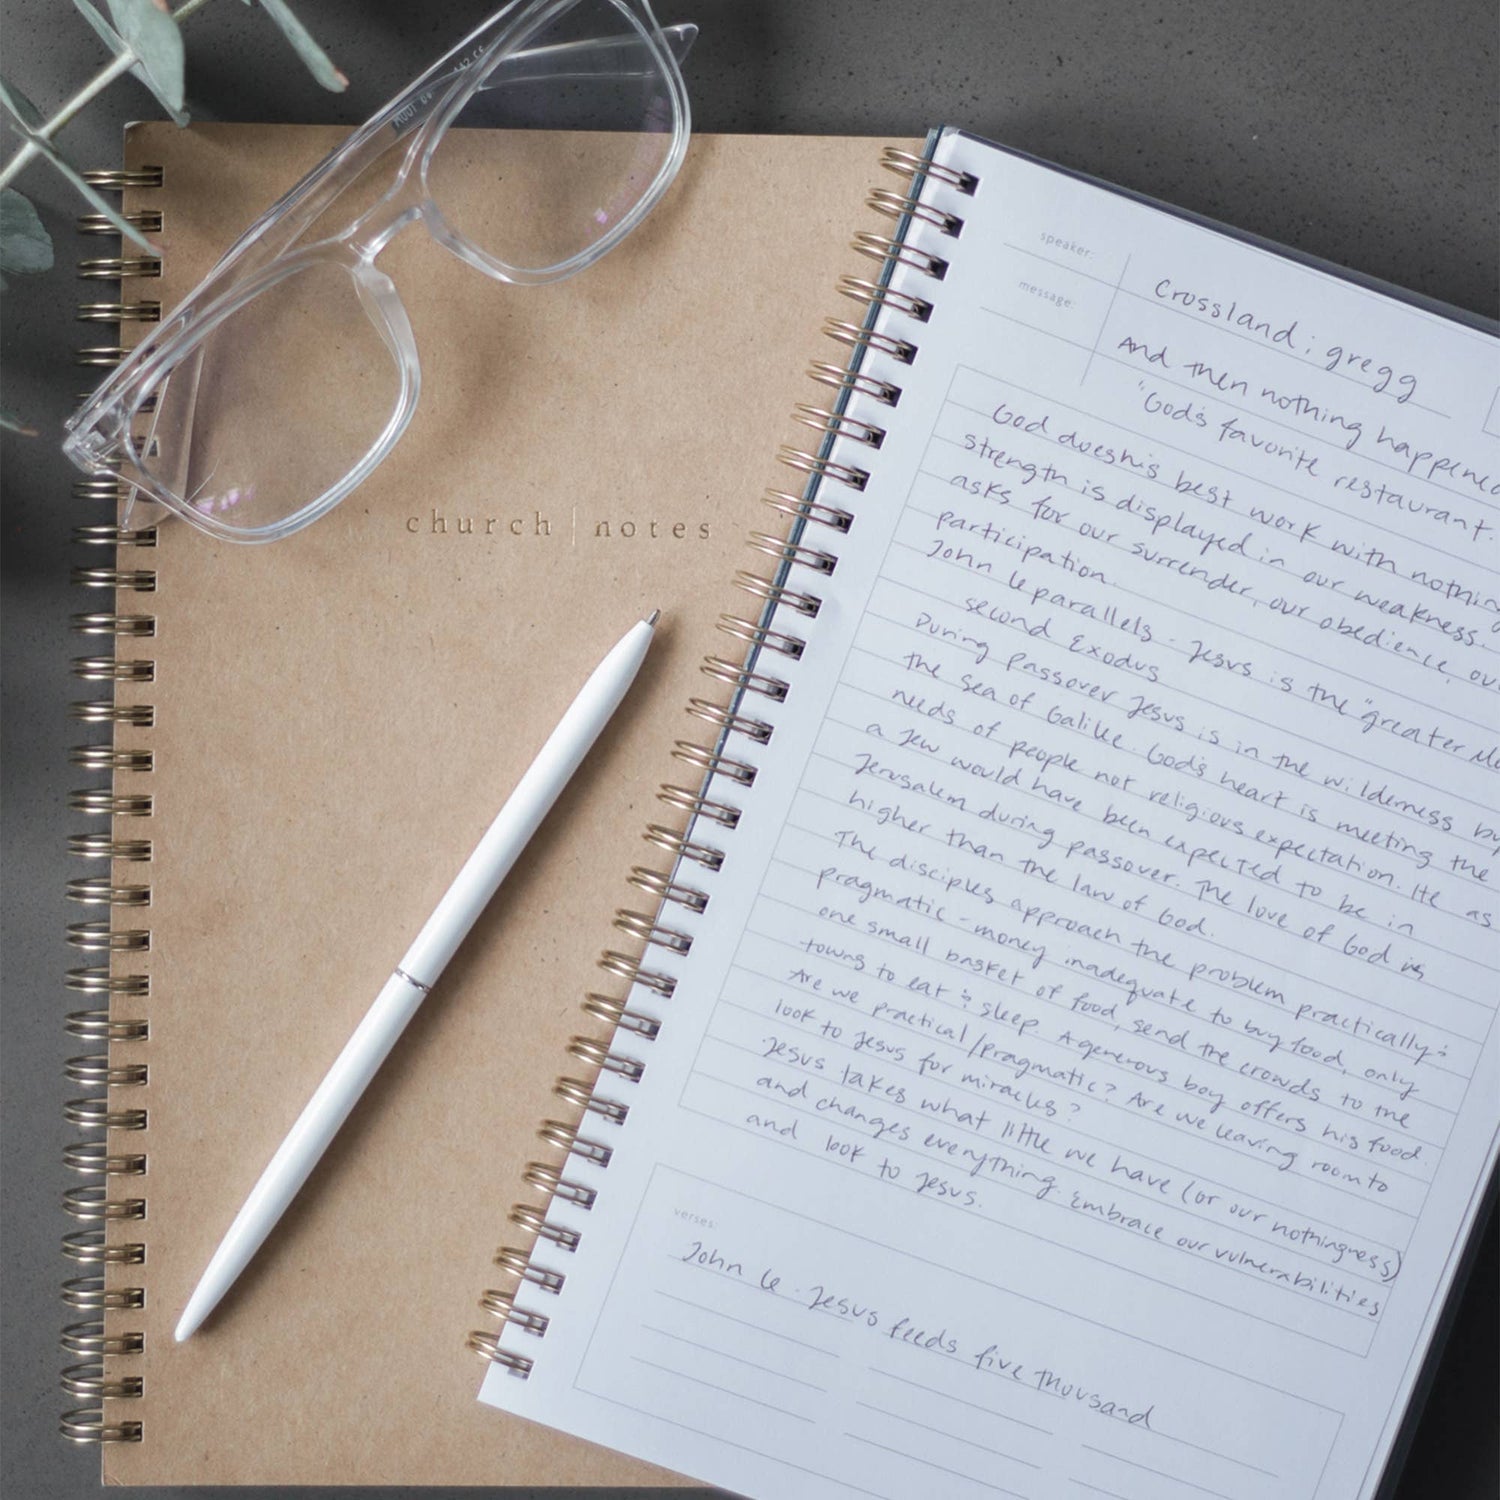 church | notes
speaker: Crossland; gregg
message: And then nothing happened
"God's favorite restaurant.
God does his best work with nothing
strength is displayed in our weakness.
asks for our surrender, our obedience, our
participation.
John 6 parallels - Jesus is the "greater
second Exodus
During passover Jesus is in the wilderness by
the sea of Galilee. God's heart is meeting the
needs of people not religious expectation. He as
a Jew would have been expected to be in
Jerusalem during passover. The love of God is
higher than the law of God.
The disciples approach the problem practically &
pragmatic - money inadequate to buy food, only
one small basket of food, send the crowds to the
towns to eat & sleep. A generous boy offers his food.
Are we practical/pragmatic? Are we leaving room to
look to Jesus for miracles?
Jesus takes what little we have (or our nothingness)
and changes everything. Embrace our vulnerabilities
and look to Jesus.
verses:
John 6. Jesus feeds five thousand